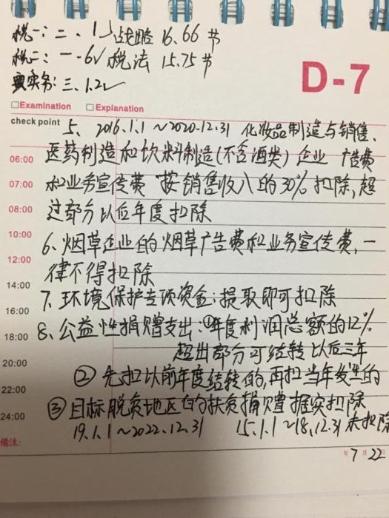 税一: 二、1 战略 16.66节
税二: 一-6 税法 15.75节
实务: 三、1.2
D-7
Examination Explanation
check point 5、2016.1.1~2020.12.31 化妆品制造与销售、
医药制造和饮料制造(不含酒类)企业 广告费
06:00
07:00 和业务宣传费 按销售收入的30%扣除,超
08:00 过部分以后年度扣除
09:00 6、烟草企业的烟草广告费和业务宣传费,一
12:00 律不得扣除
14:00 7、环境保护专项资金:提取即可扣除
16:00 8、公益性捐赠支出:①年度利润总额的12%
18:00 超出部分可结转以后三年
20:00 ②先扣以前年度结转的,再扣当年发生的
22:00 ③目标脱贫地区的扶贫捐赠据实扣除
24:00 19.1.1~2022.12.31 15.1.1~18.12.31未扣除
备注:
7月22